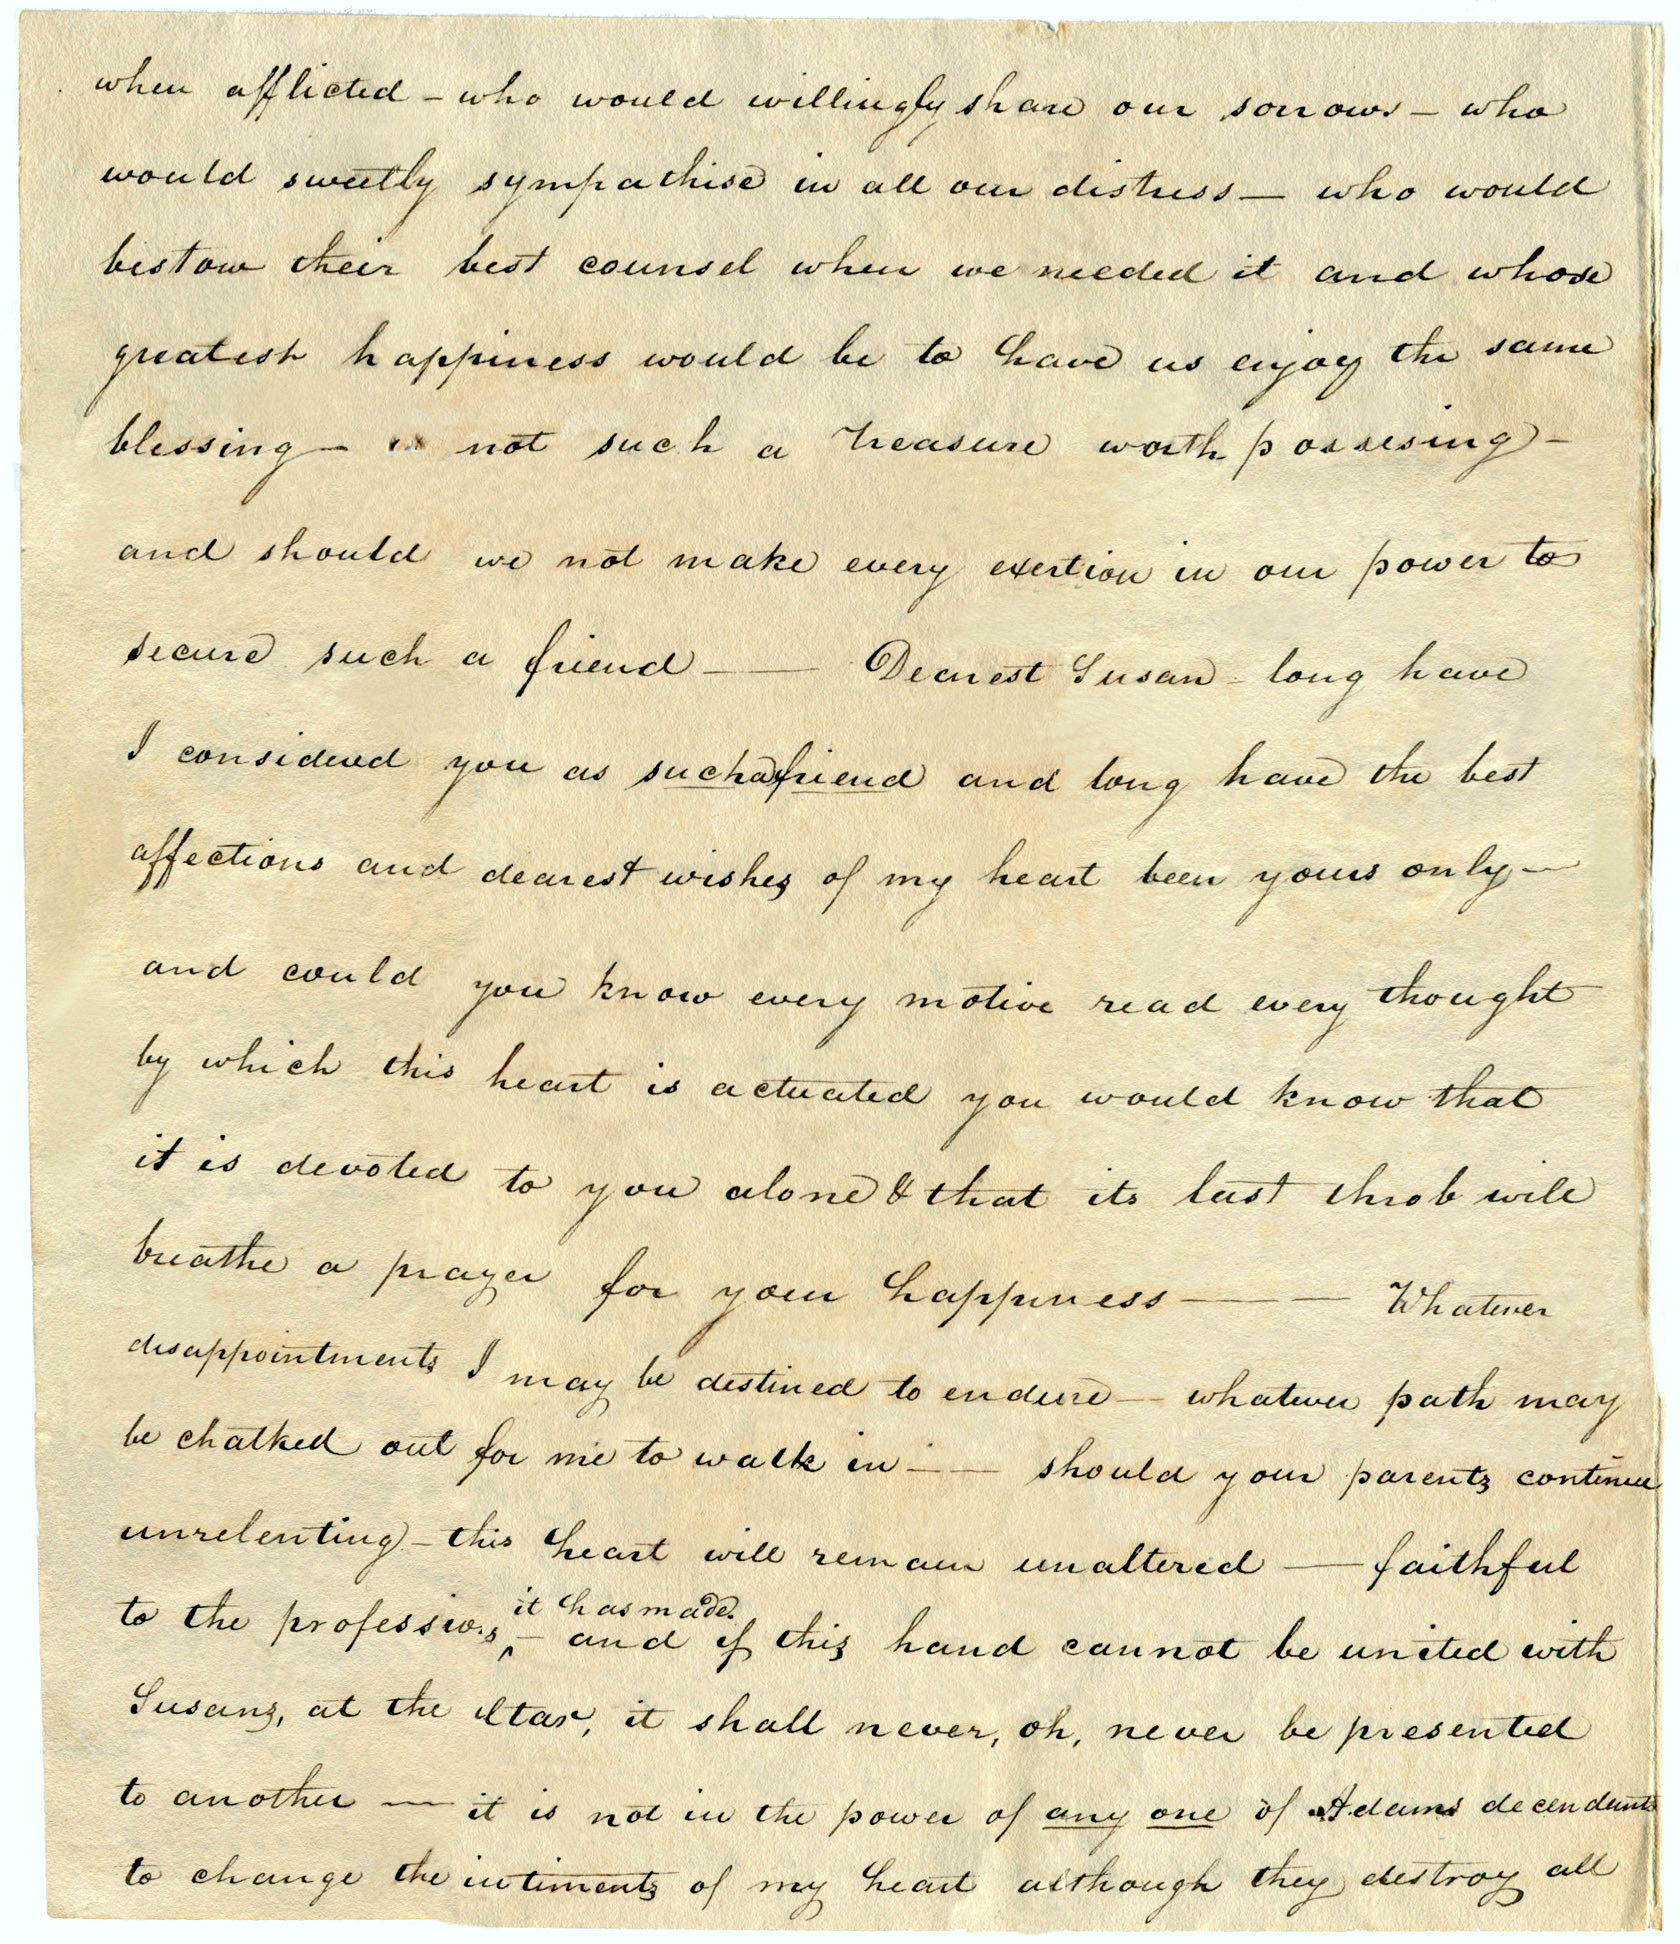 when afflicted – who would willingly share our sorrows – who
would sweetly sympathise in all our distress – who would
bestow their best counsel when we needed it and whose
greatest happiness would be to have us enjoy the same
blessing – is not such a treasure worth possesing –
and should we not make every exertion in our power to
secure such a friend — — Dearest Susan – long have
I considerd you as such a friend and long have the best
affections and dearest wishes of my heart been yours only –
and could you know every motive read every thought
by which this heart is actuated you would know that
it is devoted to you alone & that its last throb will
breathe a prayer for your happiness — — Whatever
disappointments I may be destined to endure — whatever path may
be chalked out for me to walk in — — should your parents continue
unrelenting – this heart will remain unaltered — faithful
it has made.
to the professions – and if this hand cannot be united with
Susans, at the altar, it shall never, oh, never be presented
to another — it is not in the power of any one of Adams decendants
to change the intiments of my heart although they destroy all